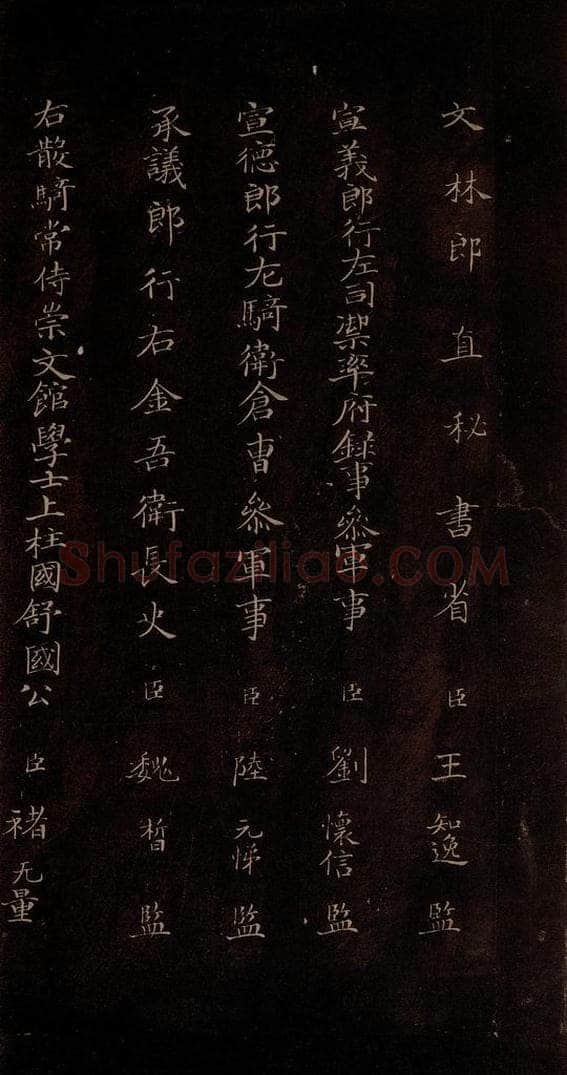 文林郎直秘書省臣王知逸監
宣義郎行左司禦率府録事參軍事臣劉懷信監
宣德郎行左驍衛倉曹參軍事臣陸元悌監
承議郎行右金吾衛長史臣魏晢監
右散騎常侍崇文館學士上柱國舒國公臣褚无量
Shufaziliao.COM